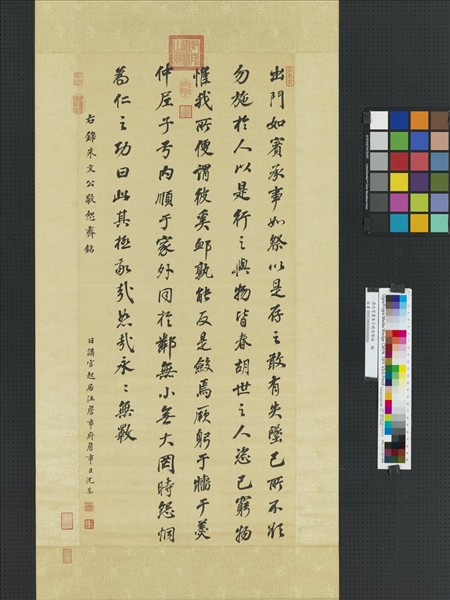 出門如賓承事如祭以是存之敢有失墜己所不欲
勿施於人以是行之與物皆春胡世之人恣己窮物
惟我所便謂彼奚卹孰能反是斂焉厥躬于牆于羹
仲尼子弓內順于家外同於鄰無小無大罔時怨恫
為仁之功曰此其極敬哉恕哉永々無斁
右錄朱文公敬恕齋銘
日講官起居注詹事府詹事臣沈荃